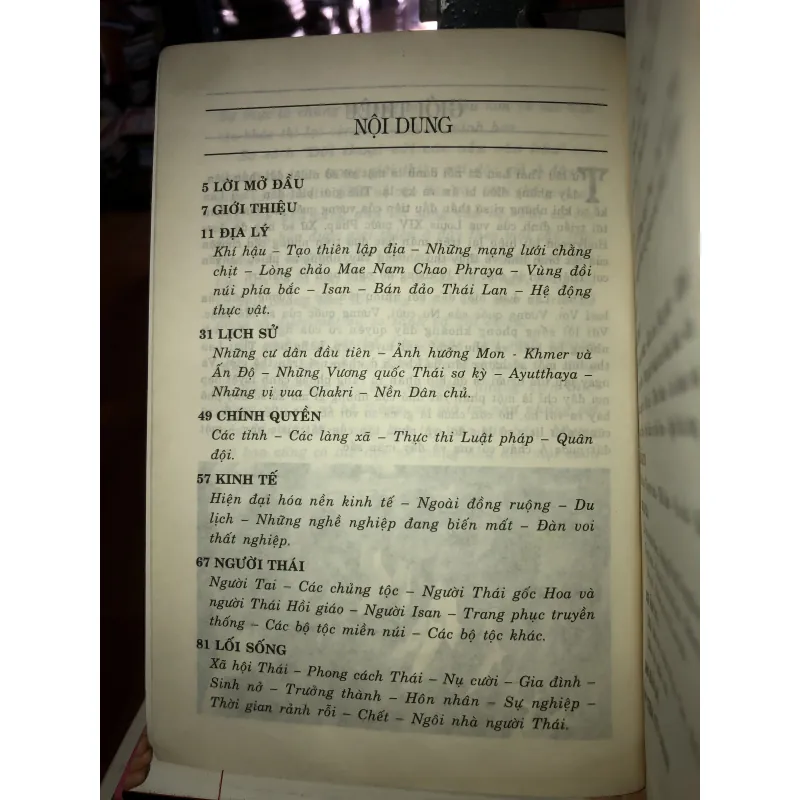 NỘI DUNG
5 LỜI MỞ ĐẦU
7 GIỚI THIỆU
11 ĐỊA LÝ
Khí hậu – Tạo thiên lập địa – Những mạng lưới chằng
chịt – Lòng chảo Mae Nam Chao Phraya – Vùng đồi
núi phía bắc – Isan – Bán đảo Thái Lan – Hệ động
thực vật.
31 LỊCH SỬ
Những cư dân đầu tiên – Ảnh hưởng Mon - Khmer và
Ấn Độ – Những Vương quốc Thái sơ kỳ – Ayutthaya –
Những vị vua Chakri – Nền Dân chủ.
49 CHÍNH QUYỀN
Các tỉnh – Các làng xã – Thực thi Luật pháp – Quân
đội.
57 KINH TẾ
Hiện đại hóa nền kinh tế – Ngoài đồng ruộng – Du
lịch – Những nghề nghiệp đang biến mất – Đàn voi
thất nghiệp.
67 NGƯỜI THÁI
Người Tai – Các chủng tộc – Người Thái gốc Hoa và
người Thái Hồi giáo – Người Isan – Trang phục truyền
thống – Các bộ tộc miền núi – Các bộ tộc khác.
81 LỐI SỐNG
Xã hội Thái – Phong cách Thái – Nụ cười – Gia đình –
Sinh nở – Trưởng thành – Hôn nhân – Sự nghiệp –
Thời gian rảnh rỗi – Chết – Ngôi nhà người Thái.